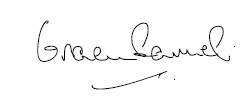 Graeme Samuel